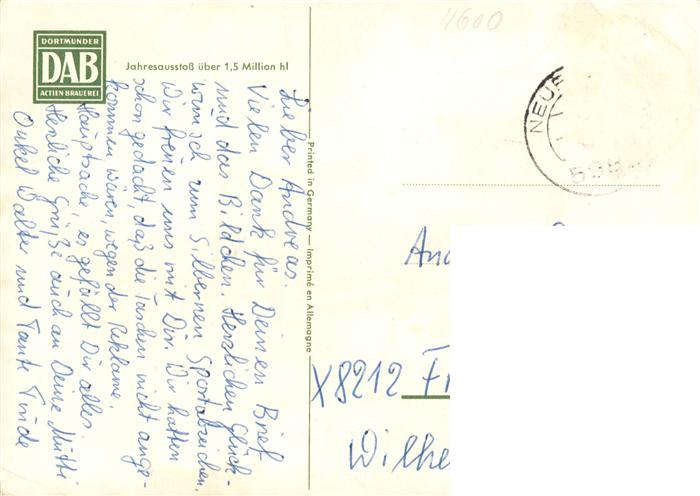 4600
DORTMUNDER
DAB
ACTIEN-BRAUEREI
Jahresausstoß über 1,5 Million hl
Lieber Andreas.
Vielen Dank für Deinen Brief
und das Bildchen. Herzlichen Glück-
wunsch zum Silbernen Sportabzeichen.
Wir freuen uns mit Dir. Wir hatten
schon gedacht, daß die Taschen nicht ange-
kommen wären, wegen der Reklame.
Hauptsache, es gefällt Dir alles.
Herzliche Grüße auch an Deine Mutti
Onkel Walter und Tante Trude
Printed in Germany — Imprimé en Allemagne
NEUE
And
X8212 Fr
Wilhe